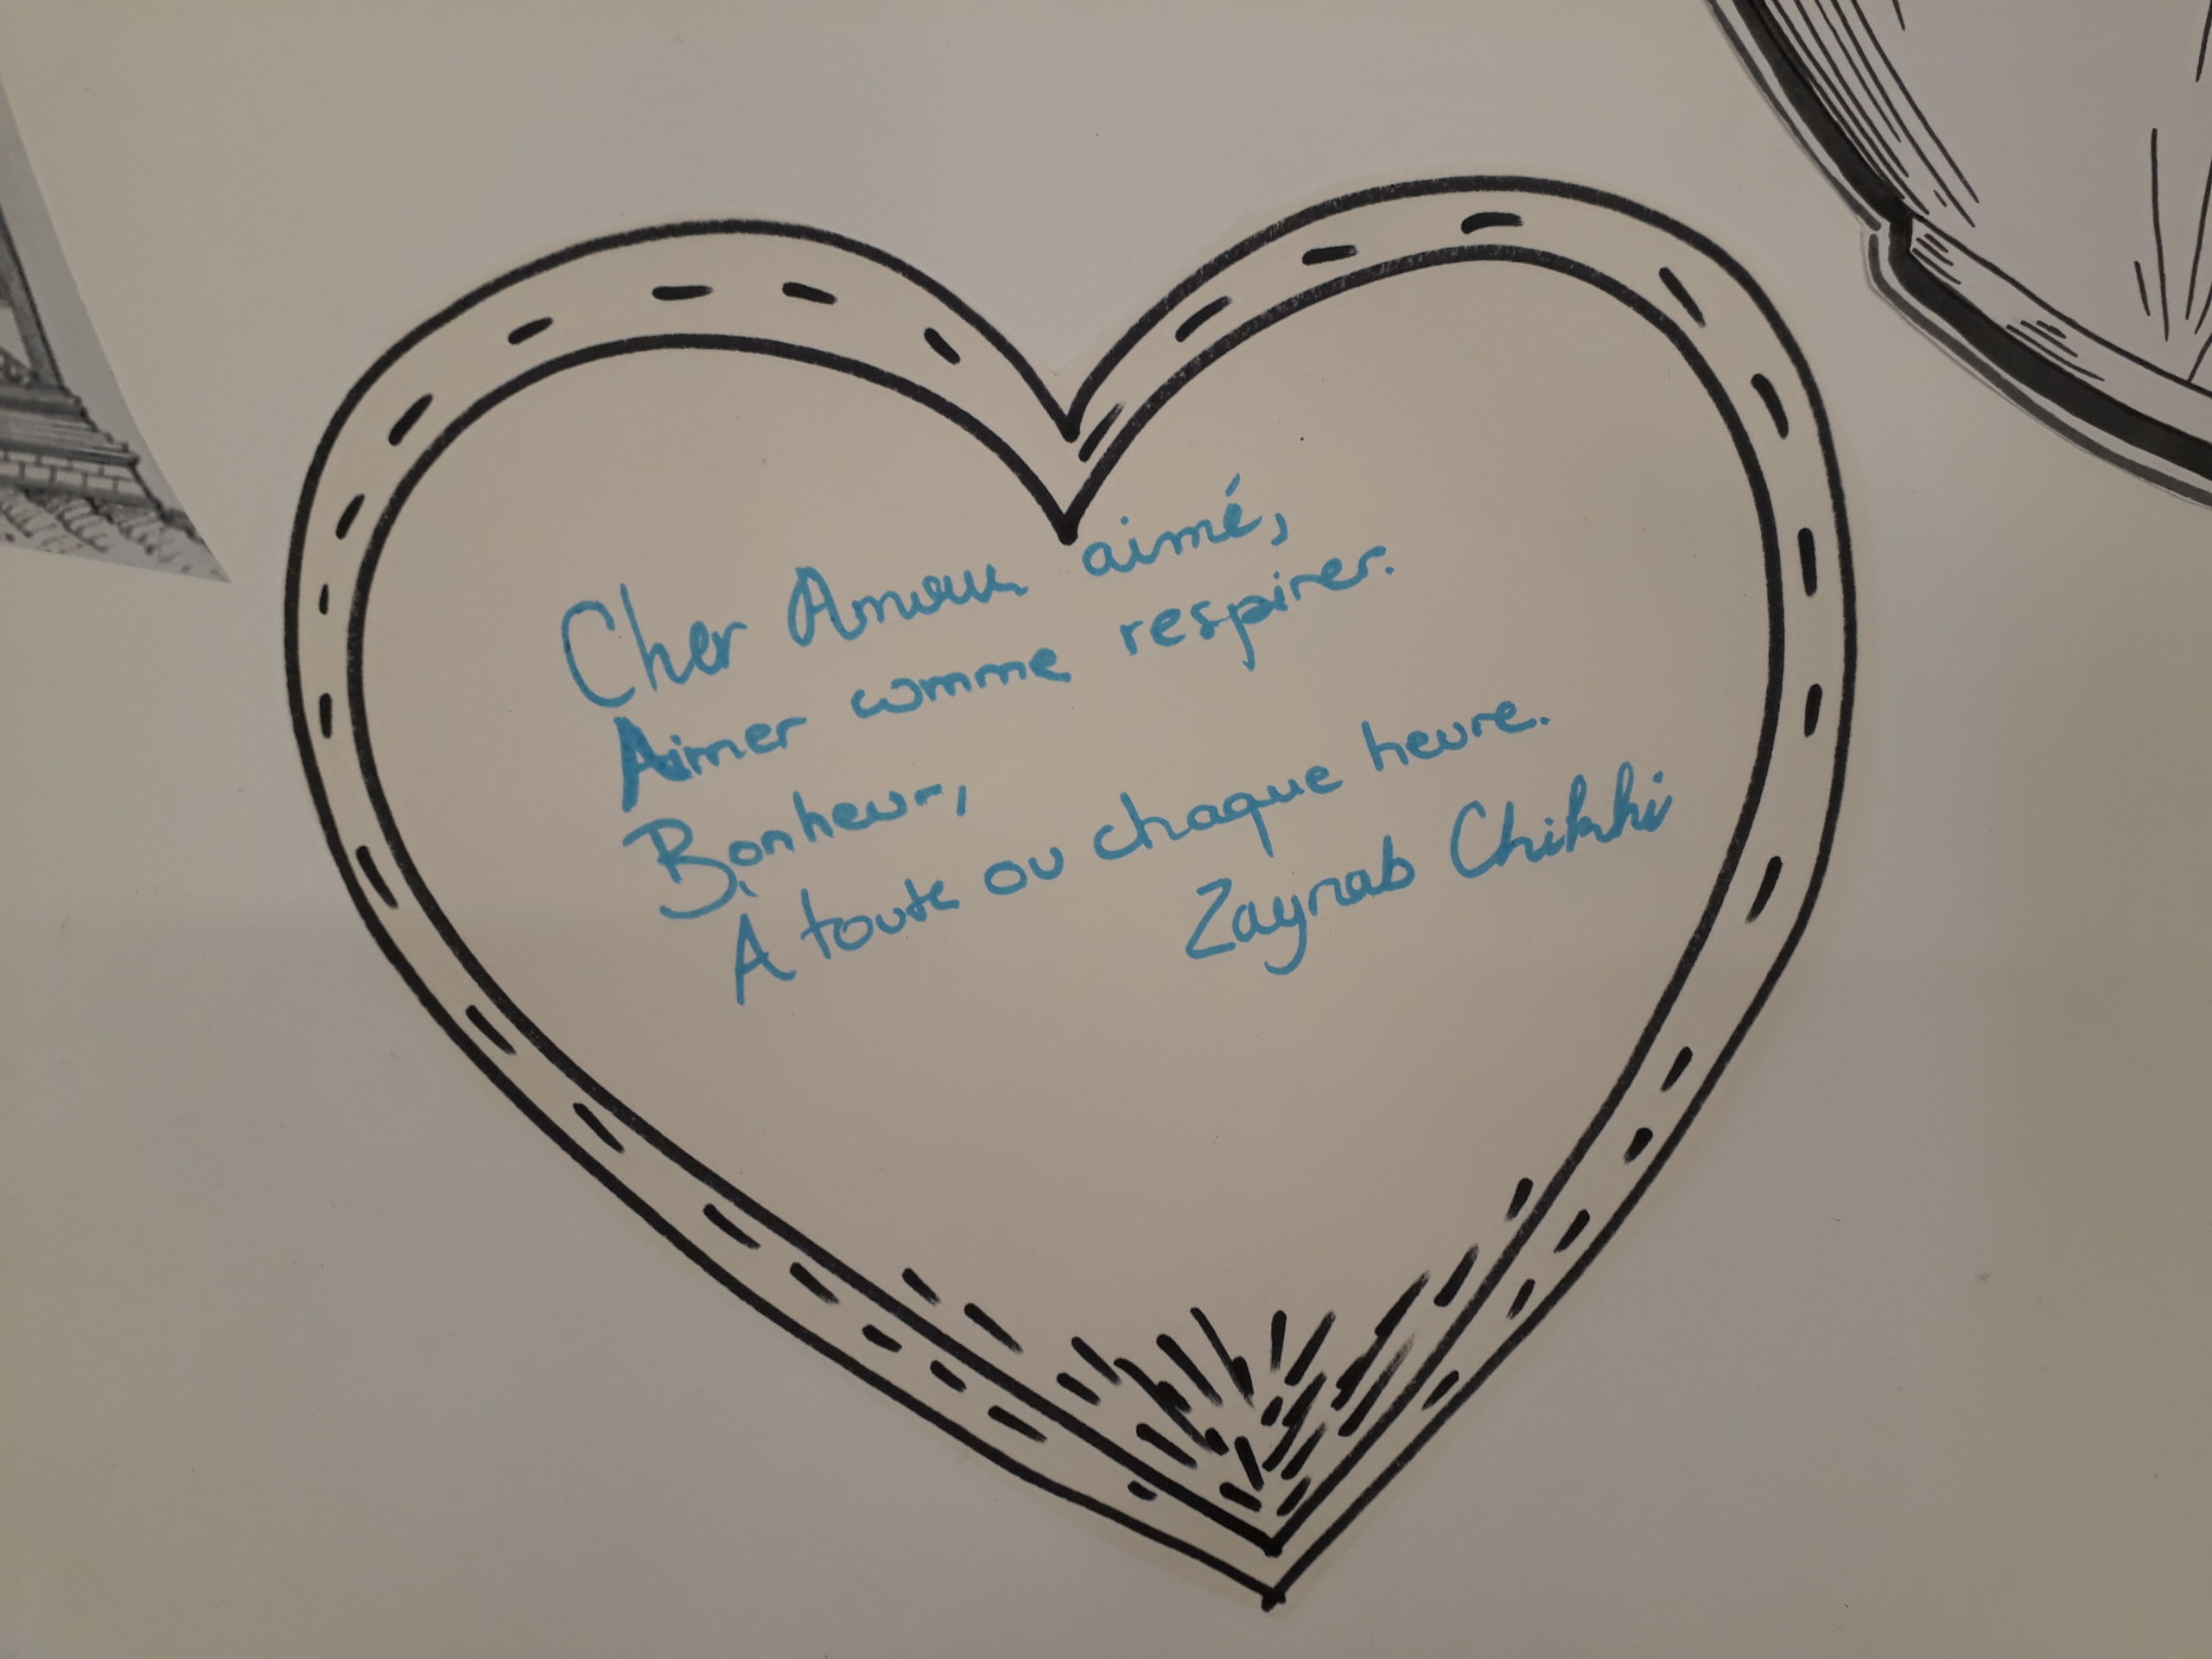 Cher Amour aimé,
Aimer comme respirer.
Bonheur,
A toute ou chaque heure.
Zaynab Chikhi